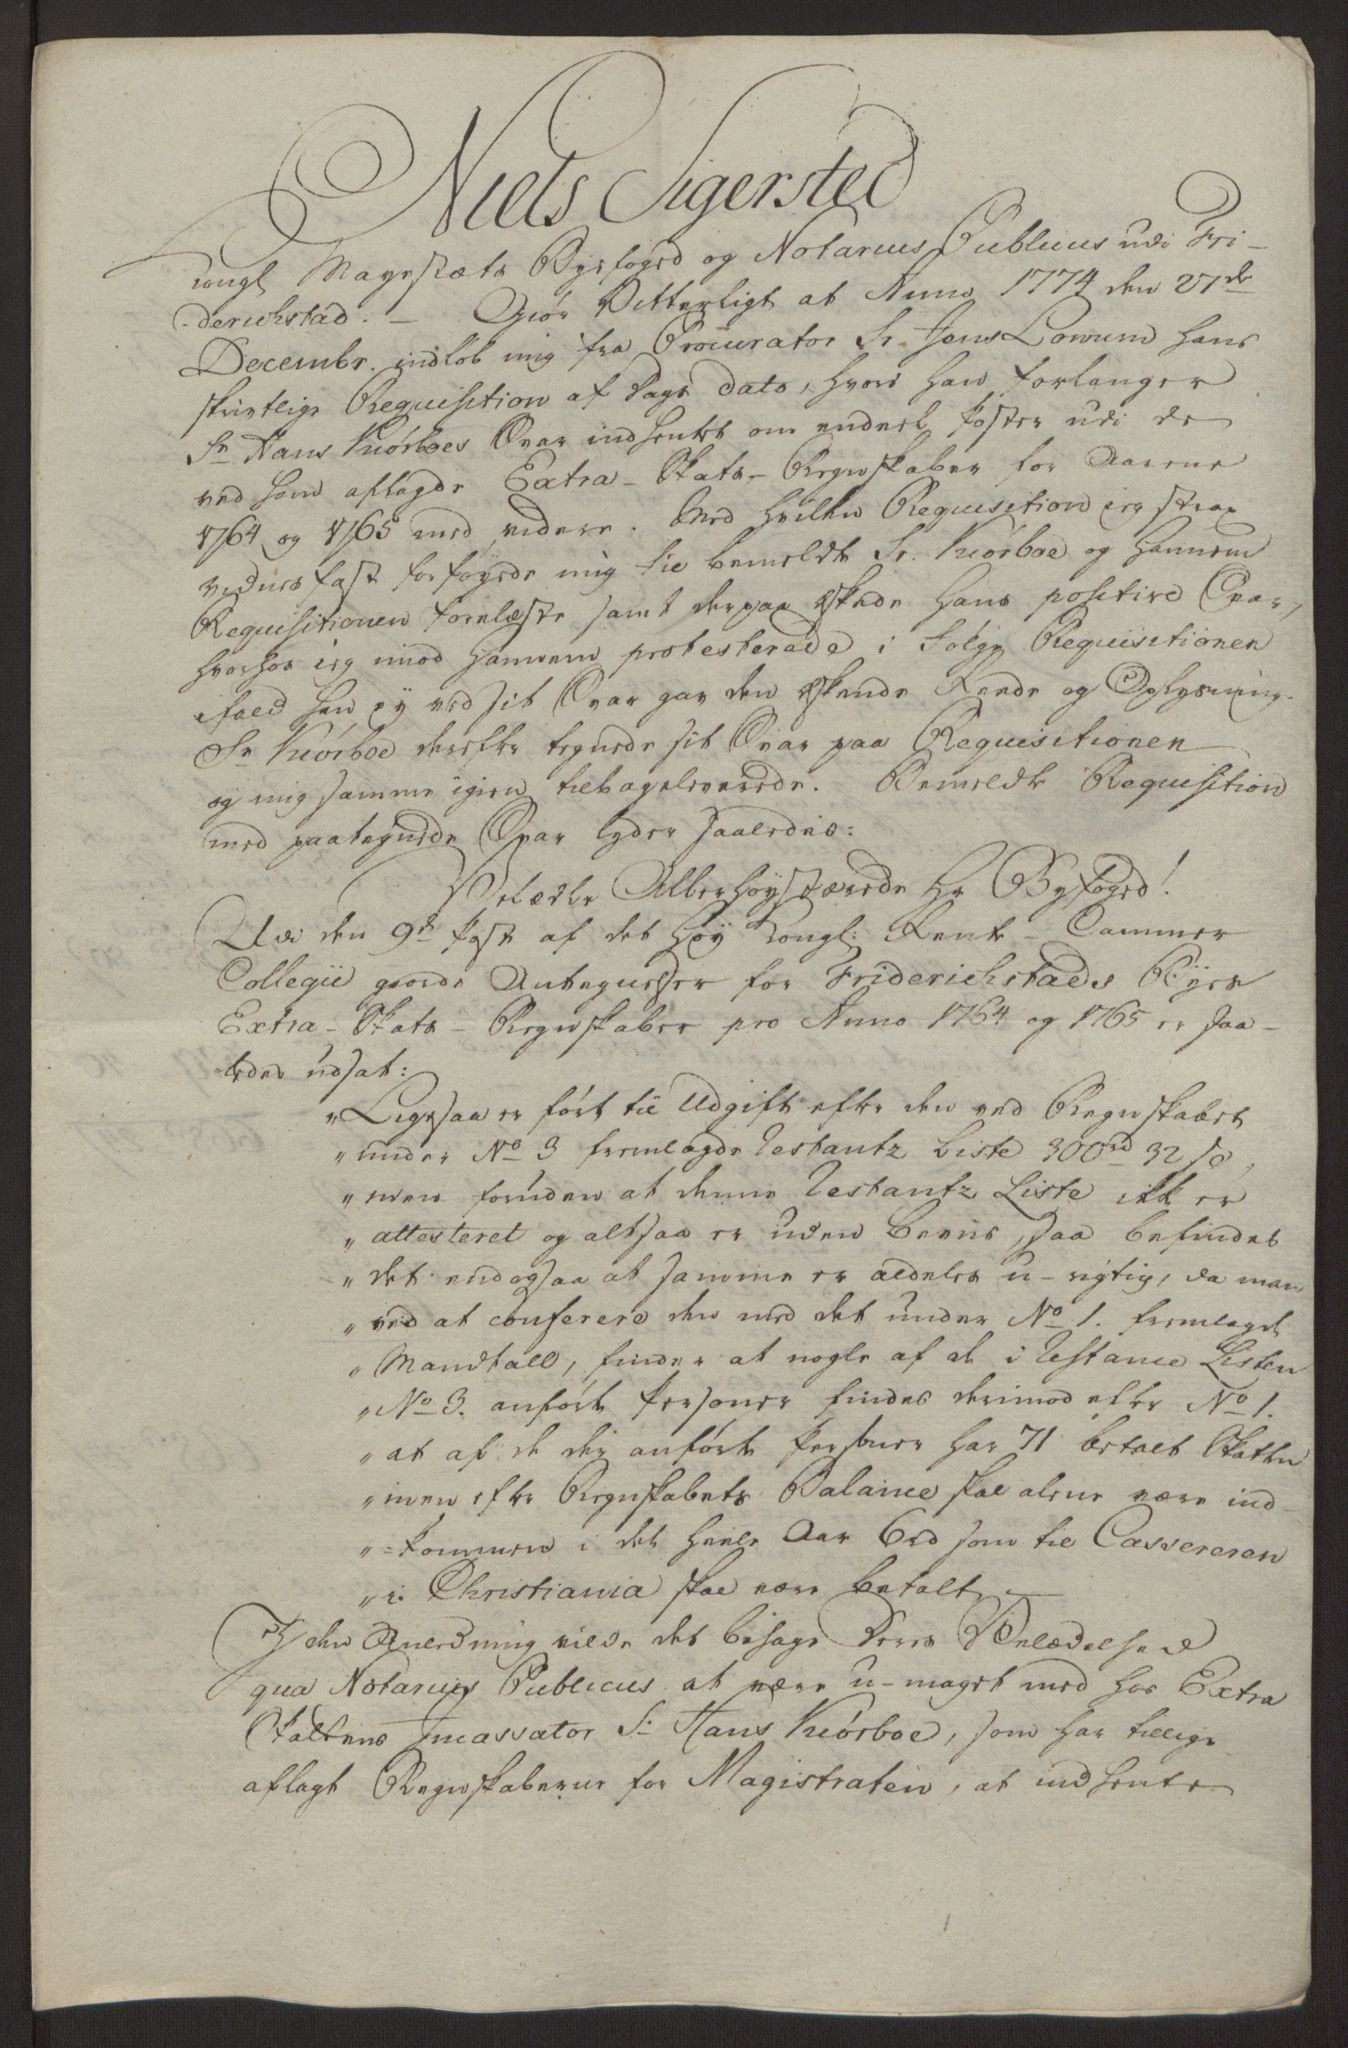 Niels Sigersted
Kongl Mayestæts Byefoged og Notarius Publicus udi Fri-
derichstad. – Giør Vitterligt at Anno 1774 den 27de
Decembr. indløb mig fra Procurator Sr. Jens Lowum hans
skrivtlige Requisition af Dags dato, hvori han forlanger
Sr Hans Kiörboes Svar indhentet om endeel Poster udi de
ved ham aflagde Extra-Skats-Regnskaber for Aarene
1764 og 1765 med videre. Med hvilken Requisition ieg strax
vednesfast forføyede mig til bemeldte Sr. Kiörboe og hannem
Requisitionen forelæste samt derpaa æskede hans positive Svar,
hvorhos ieg imod hannem protesterede i Følge Requisitionen
ifald han ey ved sit Svar gav den æskende Reede og Oplysning.
Sr Kiörboe derefter tegnede sit Svar paa Requisitionen
og mig samme igien tilbageleverede. Bemeldte Requisition
med paategnede Svar lyder saaledes:
Velædle Allerhøystærede Hr Byfoged!
Udi den 9de Post af det høy Kongl: Rente-Cammer
Collegii giorde Antegnelser for Friderichstads Byes
Extra-Skats-Regnskaber pro Anno 1764 og 1765 er saa-
ledes udsat:
„Ligesaa er ført til Udgift efter den ved Regnskabet
„under No 3 fremlagde Restantz Liste 300rd 32 s,
„men foruden at denne Restantz Liste ikke er
„attesteret og altsaa er uden Beviis, saa befindes
„det endogsaa at samme er aldeles u-rigtig, da man
„ved at conferere den med det under No 1. fremlagde
„Mandtall, finder at nogle af de i Restance Listen
„No 3. anførte Personer findes derimod efter No 1.
„at af de der anførte Personer har 71 betalt Skatten
„men efter Regnskabets Balance skal alene være ind-
„-kommen i det heele Aar 6rd som til Cassereren
„i Christiania skal være betalt –
I den Anledning vilde det behage Deres Velædelhed
qua Notarius Publicus at være u-maget med hos Extra
Skattens Incassator Sr Hans Kiörboe, som har tillige
aflagt Regnskaberne for Magistraten, at indhente